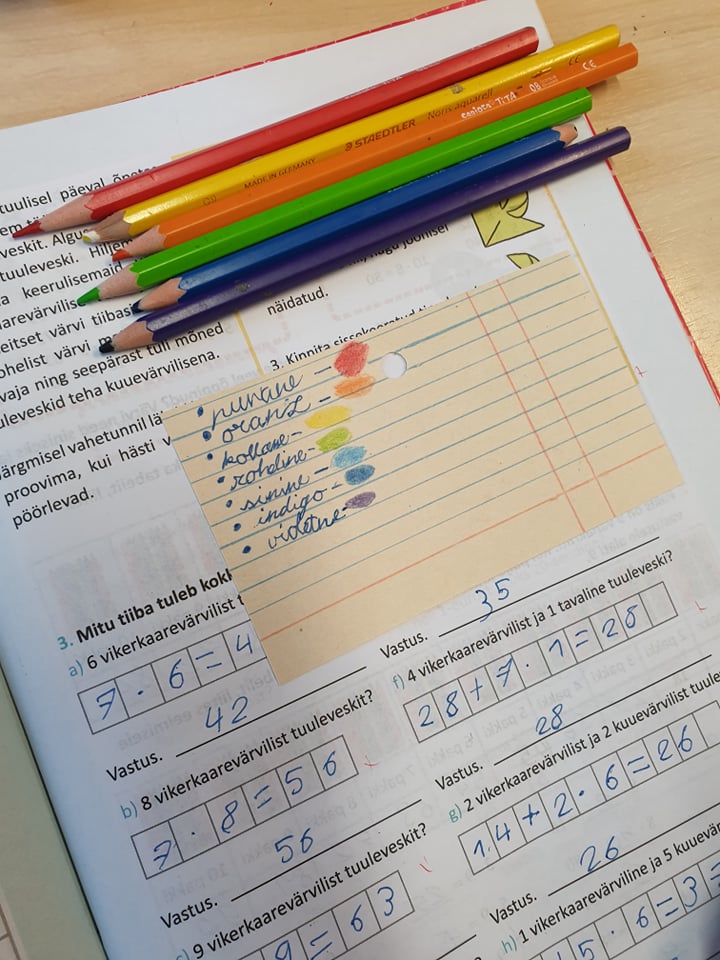 MADE IN GERMANY
STAEDTLER
Noris aquarell
carioca TITA
CE
tuulisel päeval
veskit.
tuuleveski.
keerulisemaid
tiibas
värvi
vaja ning seepärast tuli mõned
uleveskid teha kuuevärvilisena.
vahetunnil
proovima, kui hästi
pöörlevad.
nagu joonisel
näidatud.
3. Kinnita
• punane –
• oranž –
• kollane –
• rohline –
• sinine –
• indigo –
• violetne –
3. Mitu tiiba tuleb kokk
a) 6 vikerkaarevärvilist t
7 · 6 = 4
Vastus. 42
b) 8 vikerkaarevärvilist tuuleveskit?
7 · 8 = 56
Vastus. 56
9 vikerkaarevärvilist tuuleveskit?
9 = 63
Vastus. 35
f) 4 vikerkaarevärvilist ja 1 tavaline tuuleveski?
28 + 7 · 1 =
Vastus. 28
g) 2 vikerkaarevärvilist ja 2 kuuevärvilist tuule
14 + 2 · 6 = 26
Vastus. 26
h) 1 vikerkaarevärviline ja 5 kuuevär
5 · 6 = 3